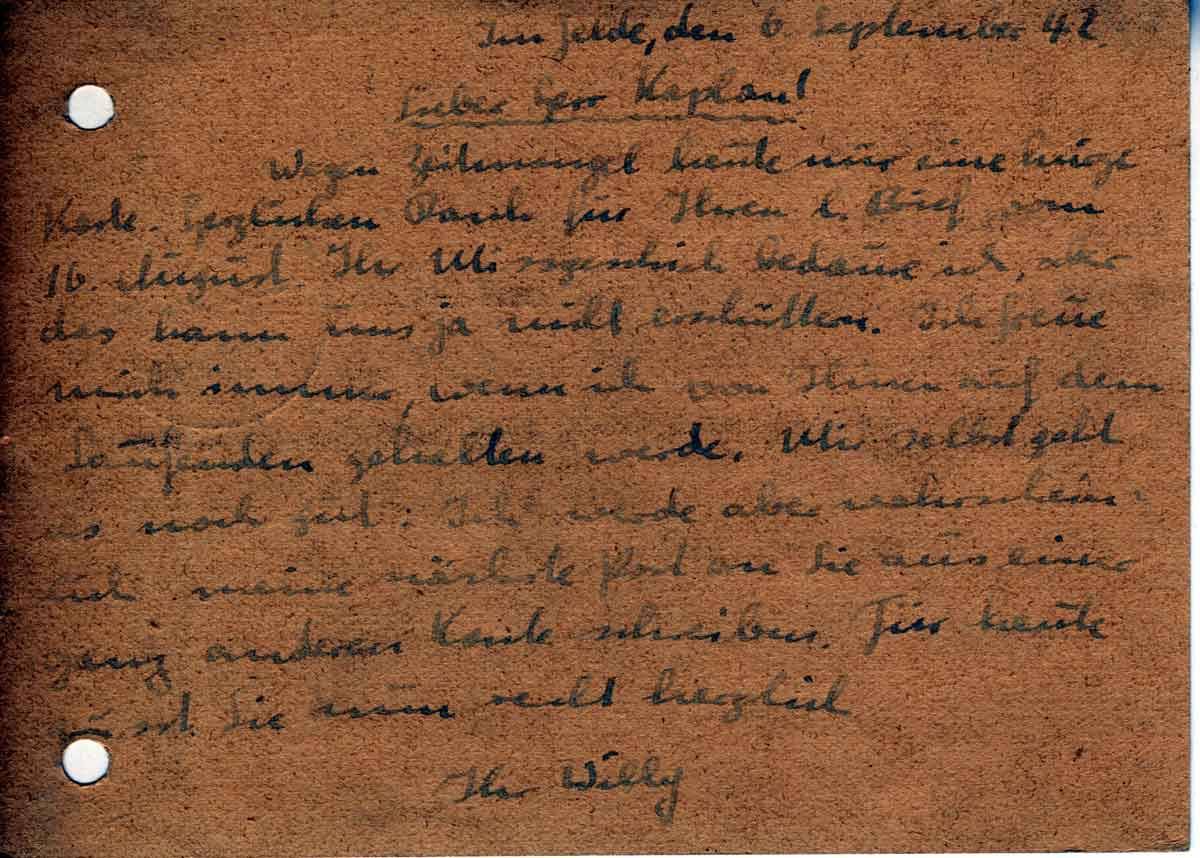 Im Felde, den 6. September 42.
Lieber Herr Kaplan!
Wegen Zeitmangel heute nur eine kurze
Karte. Herzlichen Dank für Ihren l. Brief vom
16. August. Ihr Missgeschick bedaure ich, aber
das kann uns ja nicht erschüttern. Ich freue
mich immer, wenn ich von Ihnen auf dem
Laufenden gehalten werde. Mir selbst geht
es noch gut. Ich werde aber wahrschein-
lich meine nächste Post an Sie aus einer
ganz anderen schreiben. Für heute
grüsst Sie nun recht herzlich
Ihr Willy